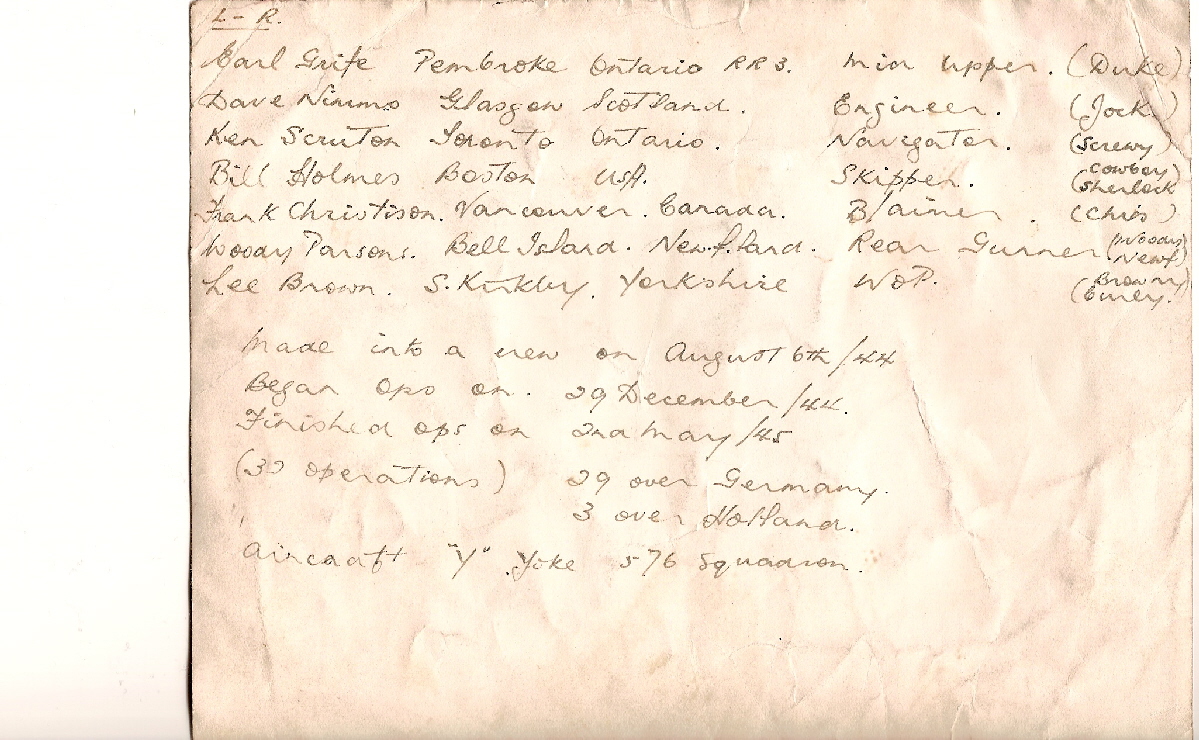 L – R.
Earl Grife Pembroke Ontario RR3. Mid Upper. (Duke)
Dave Nimmo Glasgow Scotland. Engineer. (Jock)
Ken Scruton Toronto Ontario. Navigator. (Screwy)
Bill Holmes Boston USA. Skipper. (Cowboy Sherlock)
Frank Christison. Vancouver. Canada. B/aimer. (Chris)
Woody Parsons. Bell Island. Newf.land. Rear Gunner (Woody Newf)
Lee Brown. S. Kirkby. Yorkshire WOP. (Browny Curley.)
Made into a crew on August 6th/44
Began ops on. 29 December/44.
Finished ops on 2nd May/45
(32 operations) 29 over Germany.
3 over Holland.
Aircraft "Y" Yoke 576 Squadron.